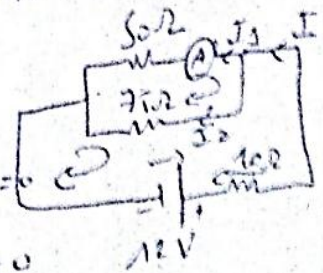 50Ω
A I1 I
75Ω
I2
=0
10Ω
- +
12V
0